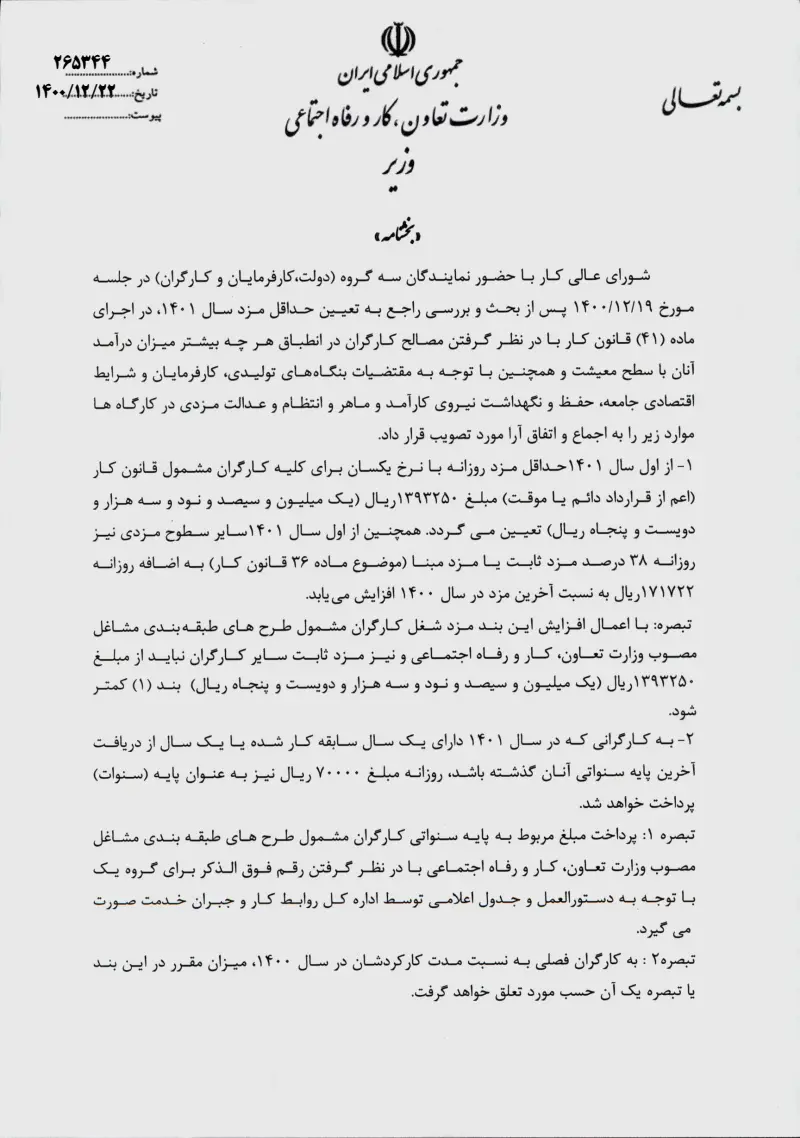 بسمه تعالی
جمهوری اسلامی ایران
وزارت تعاون، کار و رفاه اجتماعی
وزیر
شماره: ۲۶۵۳۴۴
تاریخ: ۱۴۰۰/۱۲/۲۲
پیوست:
«بخشنامه»
شورای عالی کار با حضور نمایندگان سه گروه (دولت،کارفرمایان و کارگران) در جلسه
مورخ ۱۴۰۰/۱۲/۱۹ پس از بحث و بررسی راجع به تعیین حداقل مزد سال ۱۴۰۱، در اجرای
ماده (۴۱) قانون کار با در نظر گرفتن مصالح کارگران در انطباق هر چه بیشتر میزان درآمد
آنان با سطح معیشت و همچنین با توجه به مقتضیات بنگاه‌های تولیدی، کارفرمایان و شرایط
اقتصادی جامعه، حفظ و نگهداشت نیروی کارآمد و ماهر و انتظام و عدالت مزدی در کارگاه ها
موارد زیر را به اجماع و اتفاق آرا مورد تصویب قرار داد.
۱- از اول سال ۱۴۰۱حداقل مزد روزانه با نرخ یکسان برای کلیه کارگران مشمول قانون کار
(اعم از قرارداد دائم یا موقت) مبلغ ۱۳۹۳۲۵۰ریال (یک میلیون و سیصد و نود و سه هزار و
دویست و پنجاه ریال) تعیین می گردد. همچنین از اول سال ۱۴۰۱سایر سطوح مزدی نیز
روزانه ۳۸ درصد مزد ثابت یا مزد مبنا (موضوع ماده ۳۶ قانون کار) به اضافه روزانه
۱۷۱۷۲۲ریال به نسبت آخرین مزد در سال ۱۴۰۰ افزایش می‌یابد.
تبصره: با اعمال افزایش این بند مزد شغل کارگران مشمول طرح های طبقه‌بندی مشاغل
مصوب وزارت تعاون، کار و رفاه اجتماعی و نیز مزد ثابت سایر کارگران نباید از مبلغ
۱۳۹۳۲۵۰ریال (یک میلیون و سیصد و نود و سه هزار و دویست و پنجاه ریال) بند (۱) کمتر
شود.
۲- به کارگرانی که در سال ۱۴۰۱ دارای یک سال سابقه کار شده یا یک سال از دریافت
آخرین پایه سنواتی آنان گذشته باشد، روزانه مبلغ ۷۰۰۰۰ ریال نیز به عنوان پایه (سنوات)
پرداخت خواهد شد.
تبصره ۱: پرداخت مبلغ مربوط به پایه سنواتی کارگران مشمول طرح های طبقه بندی مشاغل
مصوب وزارت تعاون، کار و رفاه اجتماعی با در نظر گرفتن رقم فوق الذکر برای گروه یک
با توجه به دستورالعمل و جدول اعلامی توسط اداره کل روابط کار و جبران خدمت صورت
می گیرد.
تبصره۲ : به کارگران فصلی به نسبت مدت کارکردشان در سال ۱۴۰۰، میزان مقرر در این بند
یا تبصره یک آن حسب مورد تعلق خواهد گرفت.